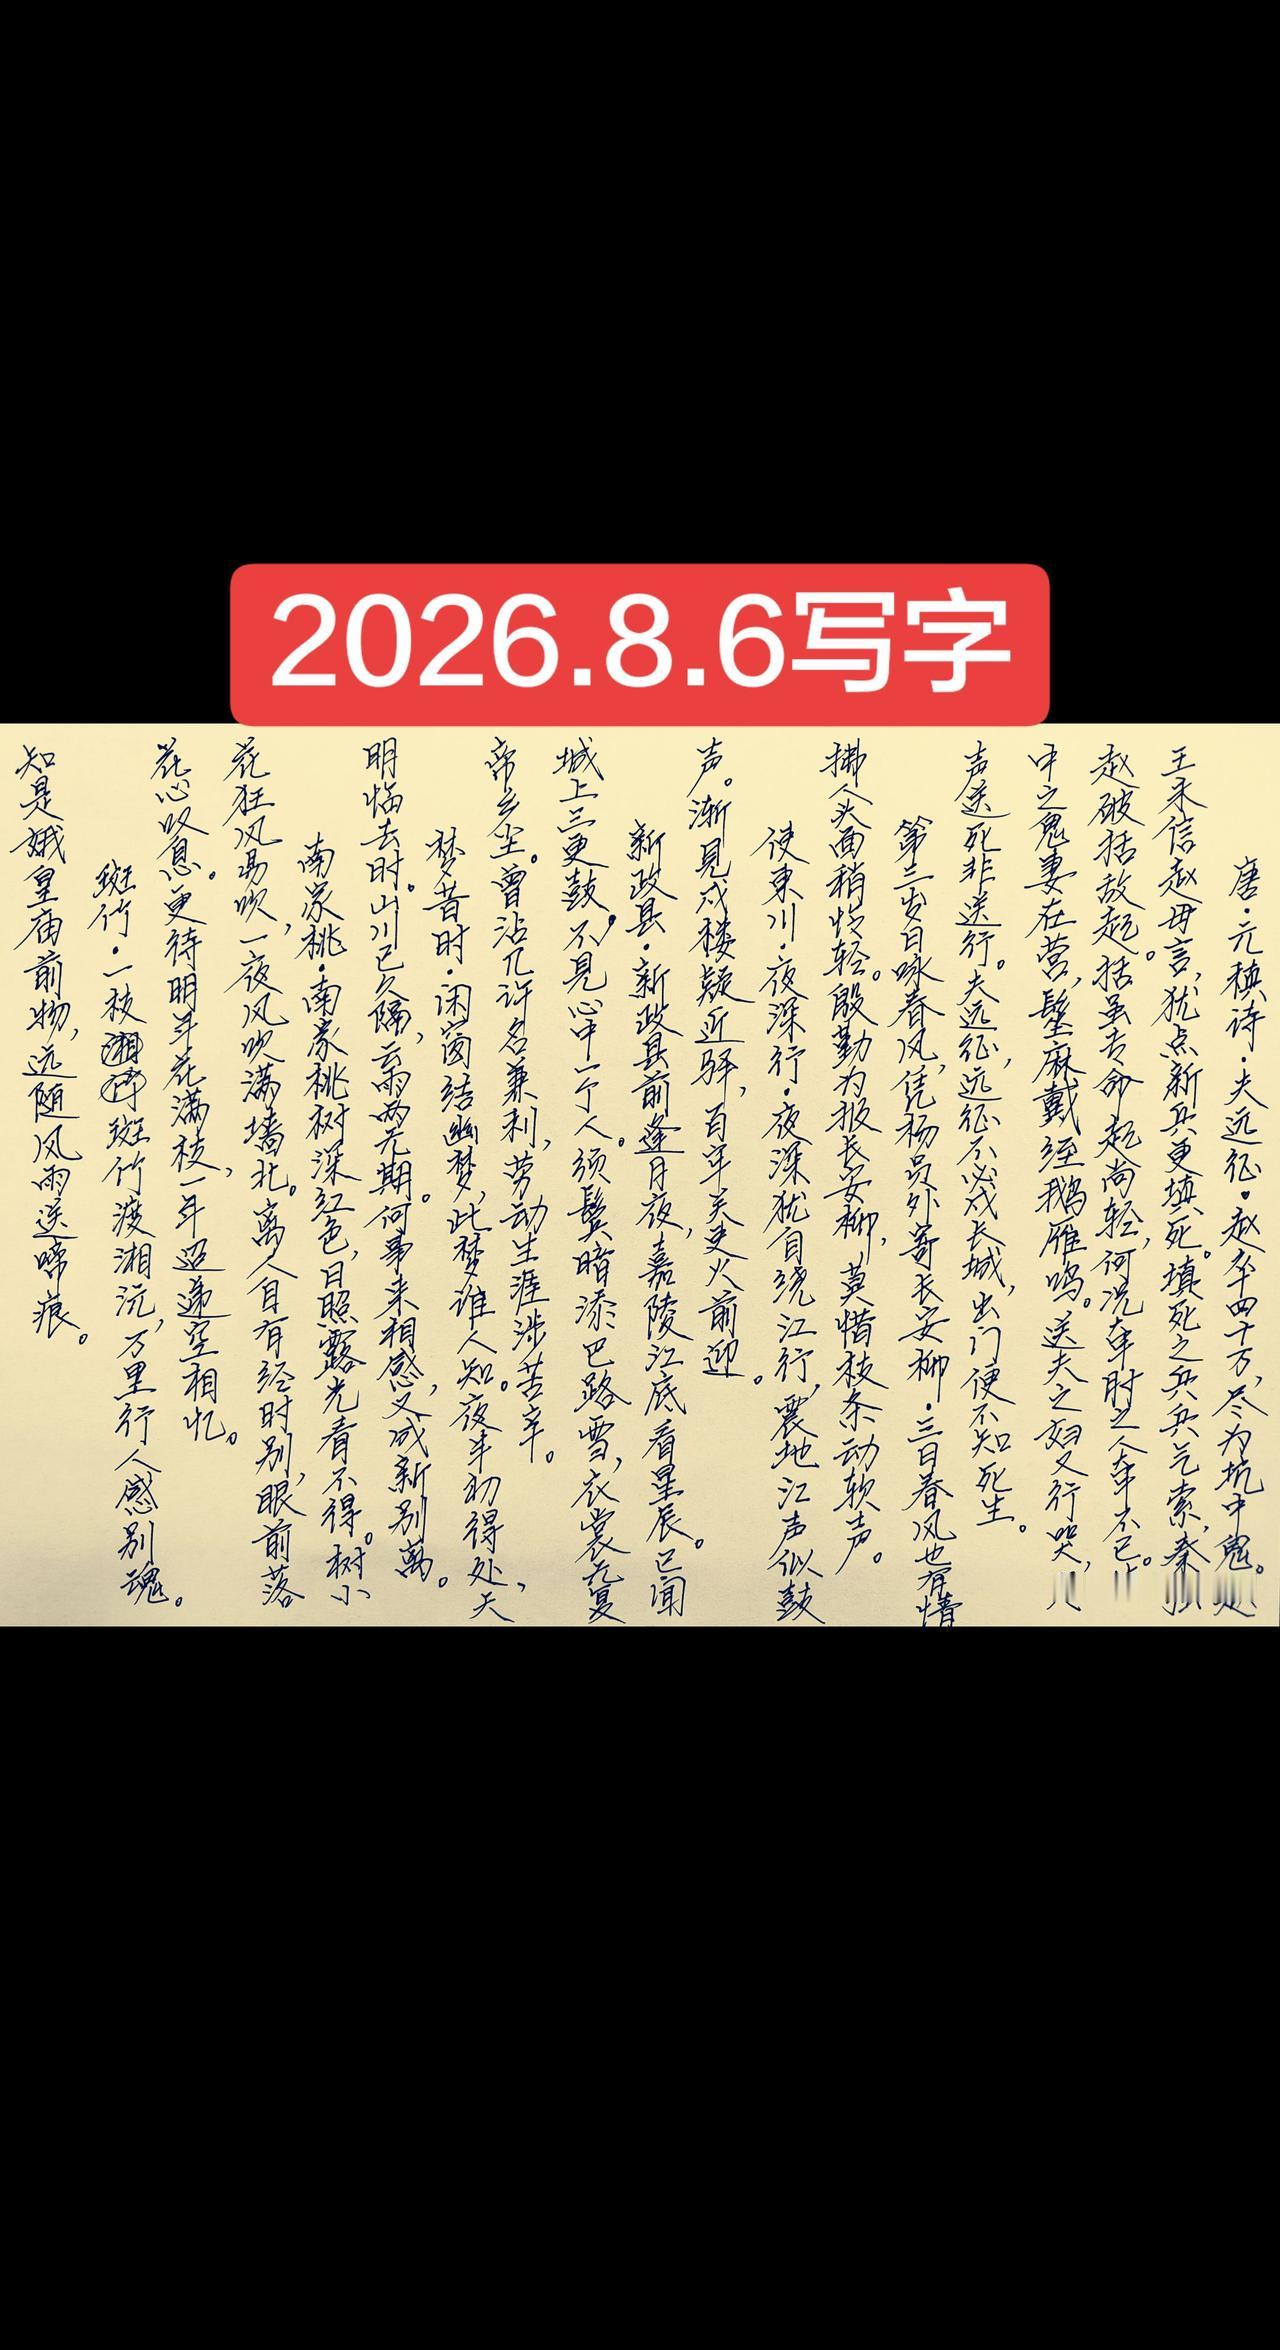 2026.8.6写字
唐·元稹诗·夫远征·赵卒四十万,尽为坑中鬼。赵
王未信赵母言,犹点新兵更填死。填死之兵兵气索,秦强
赵破括敌起。括虽专命起尚轻,何况牵肘之人牵不已。
中之鬼妻在营,髽麻戴绖鹅雁鸣。送夫之妇又行哭,
声送死非送行。夫远征,远征不必戍长城,出门便不知死生。
第三岁日咏春风,凭杨员外寄长安柳·三日春风也有情
拂人头面稍怜轻。殷勤为报长安柳,莫惜枝条动软声。
使东川·夜深行·夜深犹自绕江行,震地江声似鼓
声。渐见戍楼疑近驿,百牢关吏火前迎。
新政县·新政县前逢月夜,嘉陵江底看星辰。已闻
城上三更鼓,不见心中一个人。须鬓暗添巴路雪,衣裳无复
帝乡尘。曾沾几许名兼利,劳动生涯涉苦辛。
梦昔时·闲窗结幽梦,此梦谁人知。夜半初得处,天
明临去时。山川已久隔,云雨两无期。何事来相感,又成新别离。
南家桃·南家桃树深红色,日照露光看不得。树小
花狂风易吹,一夜风吹满墙北。离人自有经时别,眼前落
花心叹息。更待明年花满枝,一年迢递空相忆。
斑竹·一枝斑竹渡湘沅,万里行人感别魂。
知是娥皇庙前物,远随风雨送啼痕。